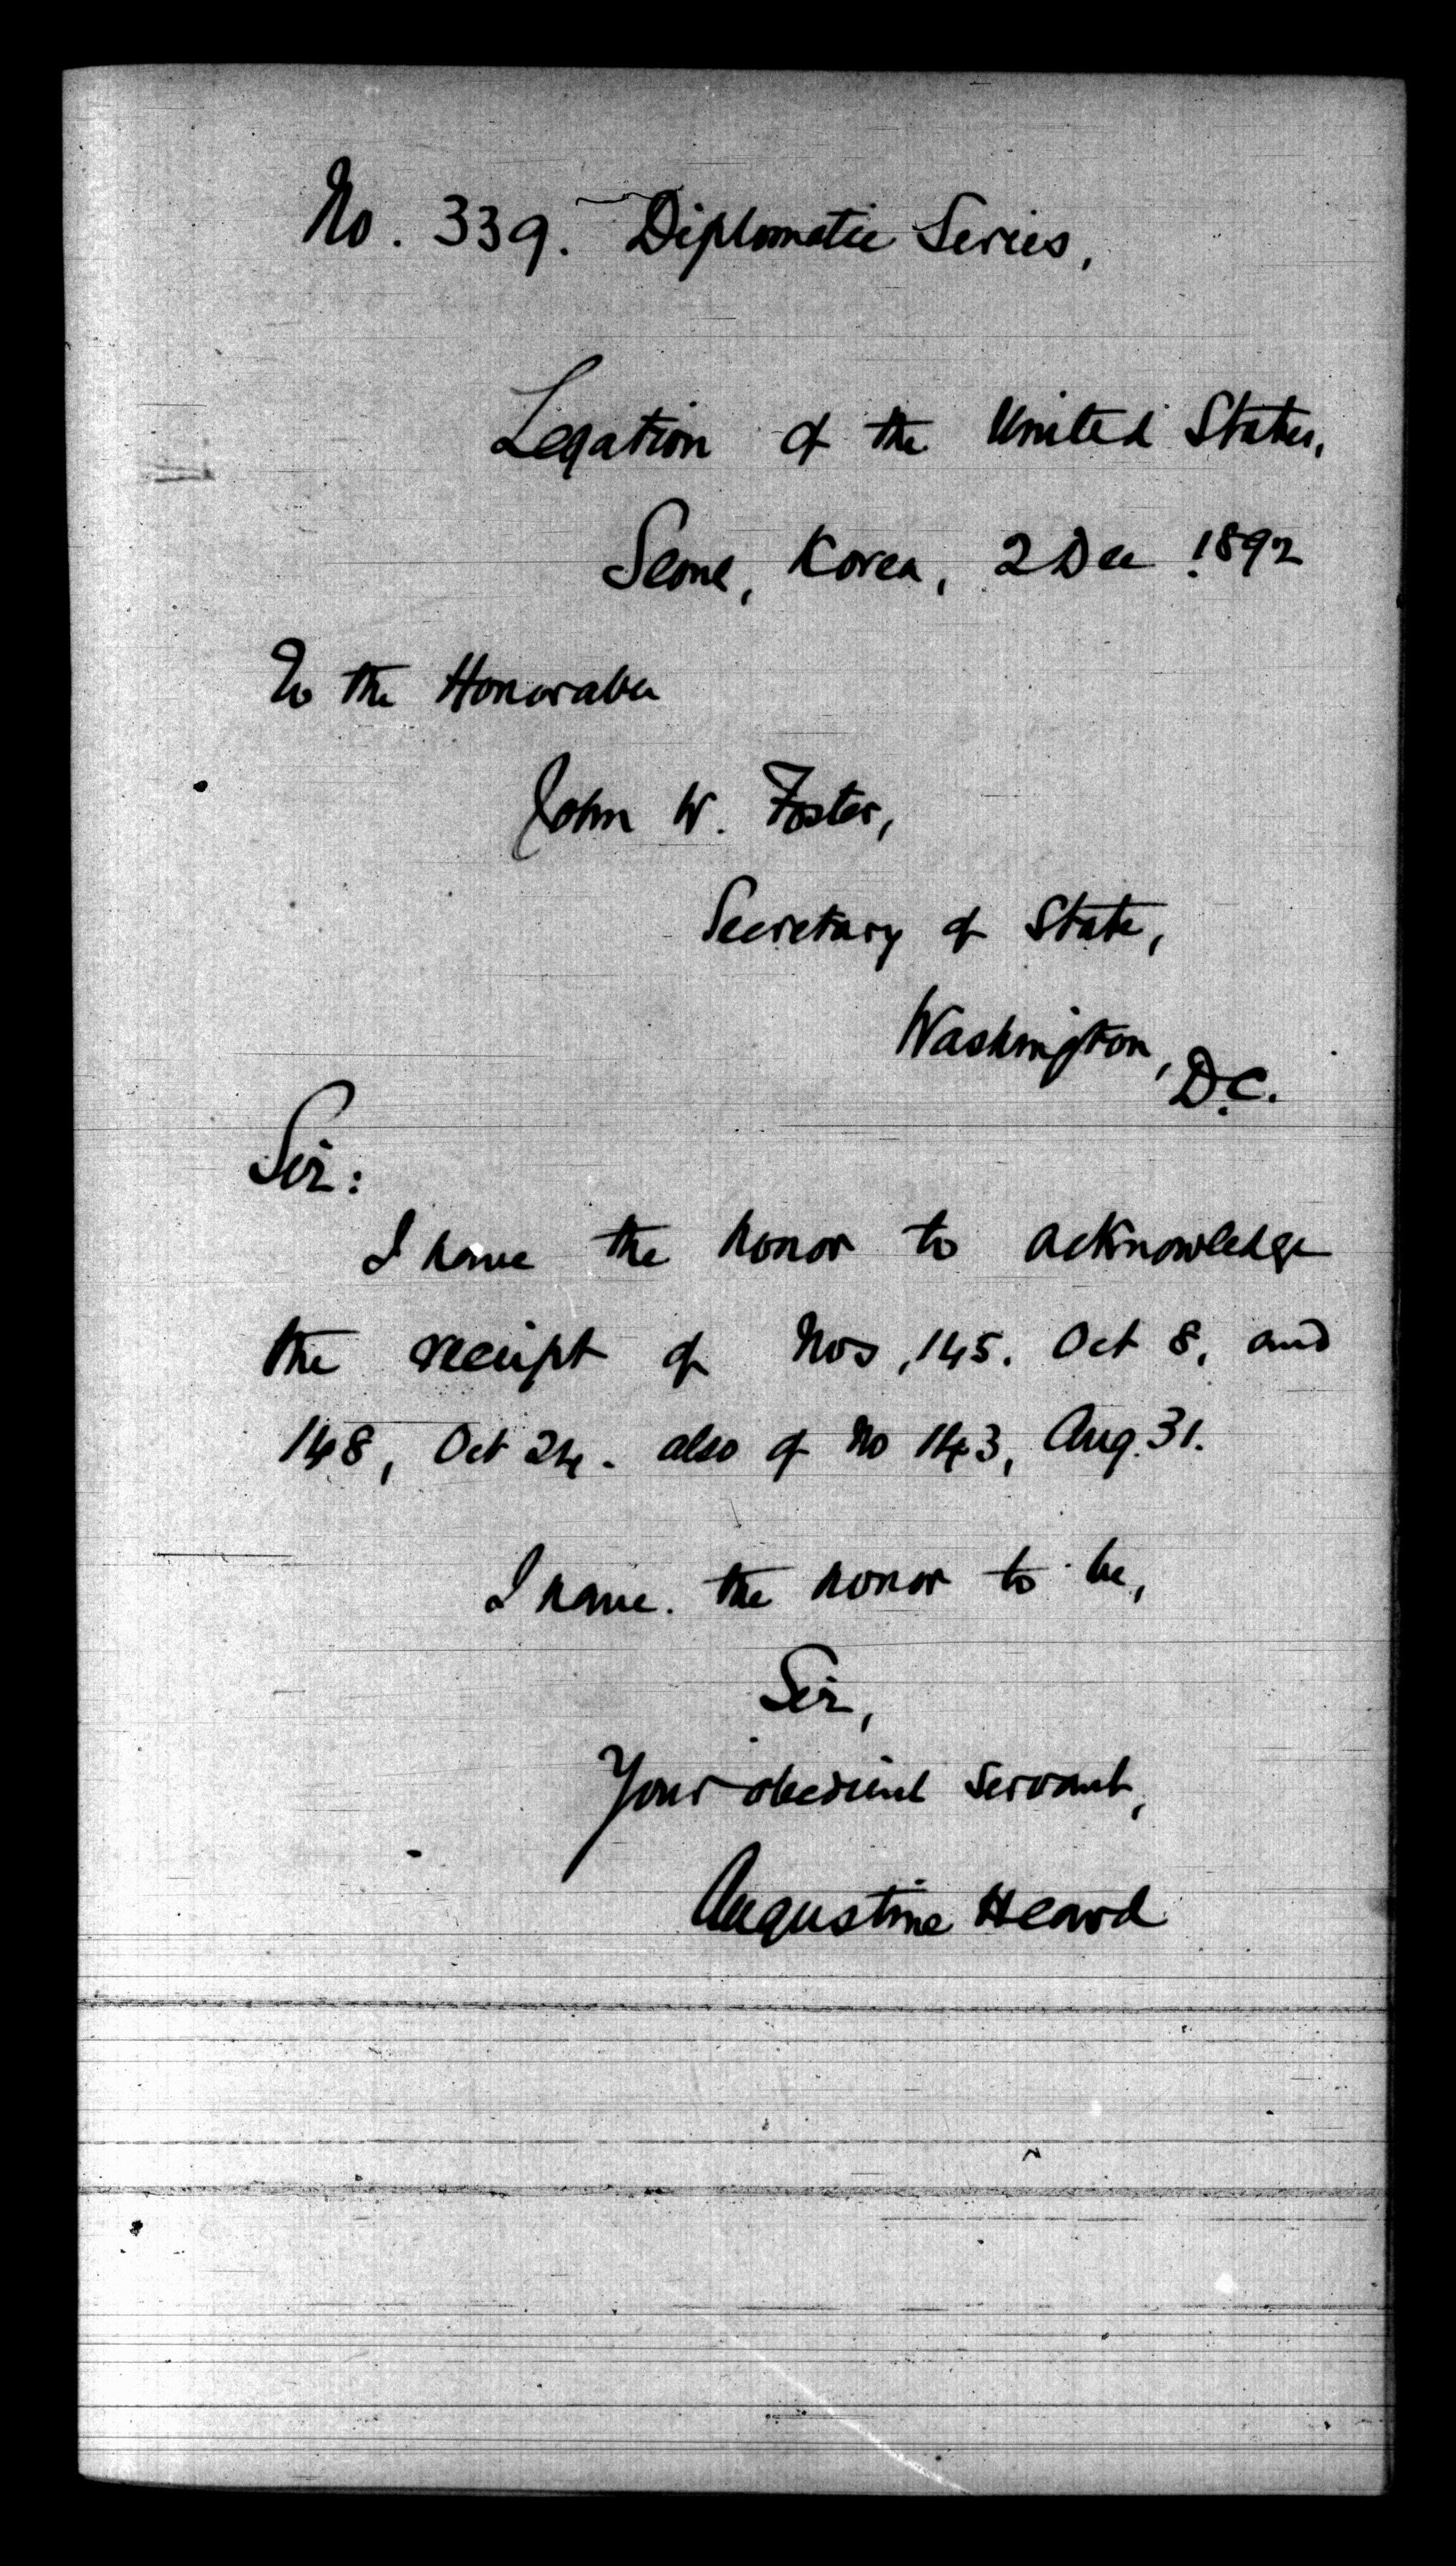 No. 339. Diplomatic Series,
Legation of the United States,
Seoul, Korea, 2 Dec 1892
To the Honorable
John W. Foster,
Secretary of State,
Washington,
D.C.
Sir:
I have the honor to acknowledge
the receipt of Nos, 145. Oct 8, and
148, Oct 24. also of No 143, Aug. 31.
I have. the honor to be,
Sir,
Your obedient servant,
Augustine Heard